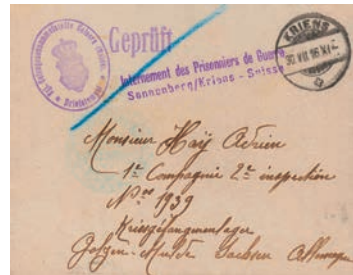 Geprüft
Internement des Prisonniers de Guerre
Sonnenberg/Kriens - Suisse
KRIENS
30.VII.16.XI
Briefstempel
Monsieur Haÿ Adrien
1e Compagnie 2e inspection
No 1939
Kriegsgefangenenlager
Sachsen Allemagne